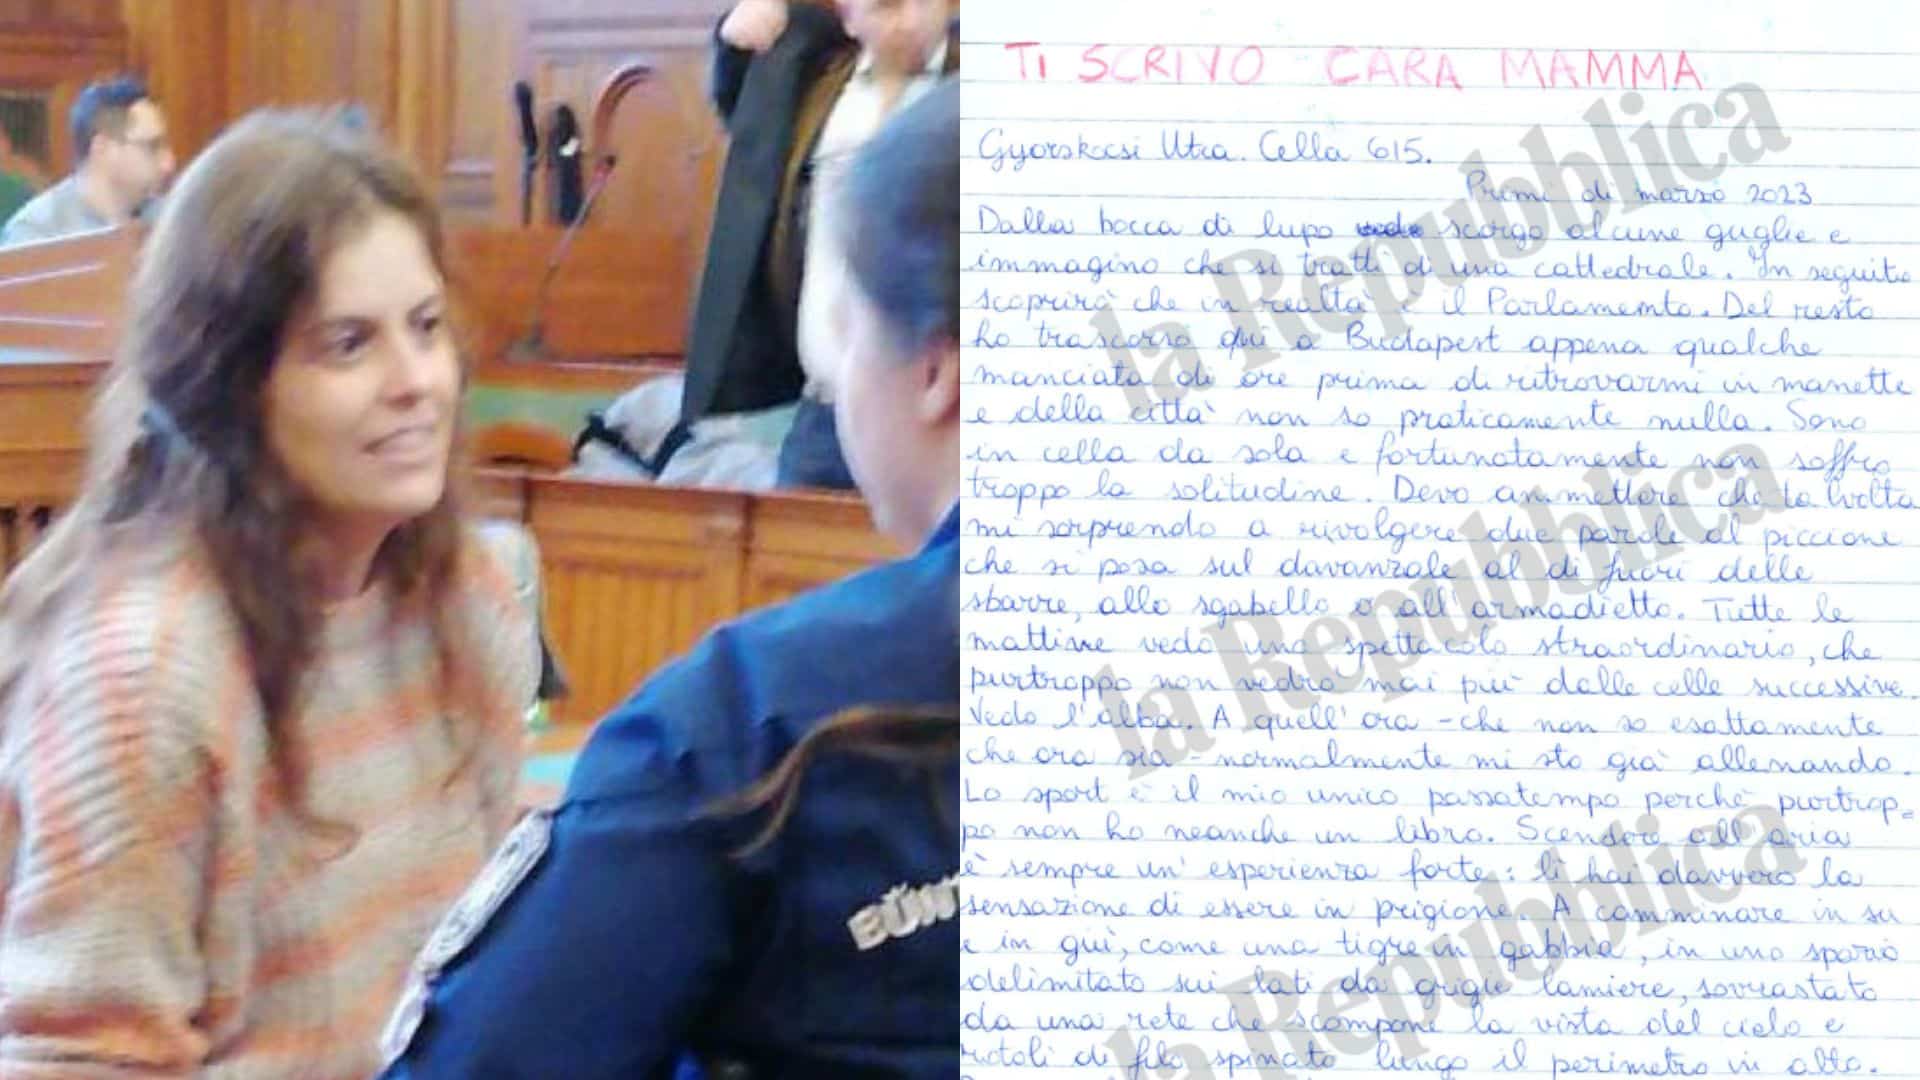 TI SCRIVO CARA MAMMA
Gyorskocsi Utca. Cella 615.
Primi di marzo 2023
Dalla bocca di lupo scorgo alcune guglie e
immagino che si tratti di una cattedrale. In seguito
scoprirò che in realtà è il Parlamento. Del resto
ho trascorso qui a Budapest appena qualche
manciata di ore prima di ritrovarmi in manette
e della città non so praticamente nulla. Sono
in cella da sola e fortunatamente non soffro
troppo la solitudine. Devo ammettere che talvolta
mi sorprendo a rivolgere due parole al piccione
che si posa sul davanzale al di fuori delle
sbarre, allo sgabello o all'armadietto. Tutte le
mattine vedo uno spettacolo straordinario, che
purtroppo non vedrò mai più dalle celle successive.
Vedo l'alba. A quell'ora - che non so esattamente
che ora sia - normalmente mi sto già allenando.
Lo sport è il mio unico passatempo perché purtrop=
po non ho neanche un libro. Scendere all'aria
è sempre un'esperienza forte: lì hai davvero la
sensazione di essere in prigione. A camminare in su
e in giù, come una tigre in gabbia, in uno spazio
delimitato sui lati da grigie lamiere, sovrastato
da una rete che scompone la vista del cielo e
rotoli di filo spinato lungo il perimetro in alto.
la Repubblica
la Repubblica
la Repubblica
BÜN